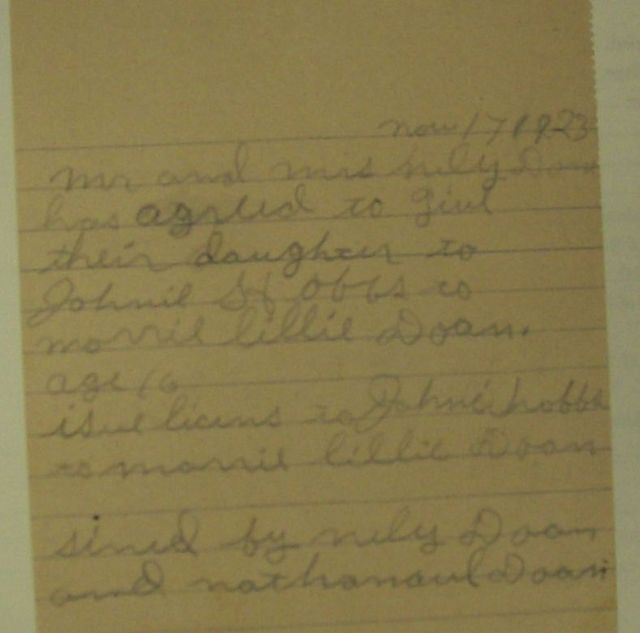 nov 17 1923
mr and mrs nily Doan
has agrued to give
their daughter to
Johnie H obbs to
marrie lillie Doan.
age 16
isue licins to Johnie hobbs
to marrie lillie Doan
sined by nily Doan
and nathanaul Doan